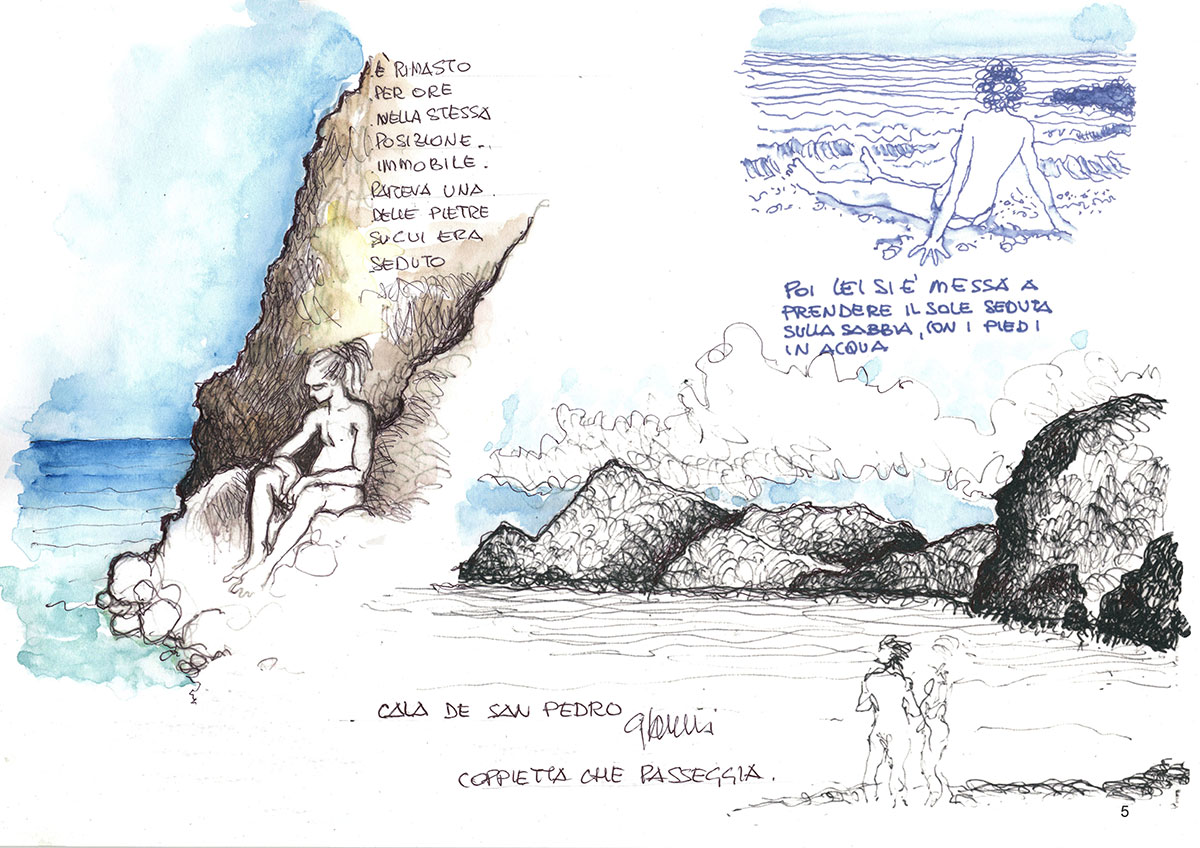 È RIMASTO
PER ORE
NELLA STESSA
POSIZIONE.
IMMOBILE.
PAREVA UNA
DELLE PIETRE
SU CUI ERA
SEDUTO
POI LEI SI E' MESSA A
PRENDERE IL SOLE SEDUTA
SULLA SABBIA, CON I PIEDI
IN ACQUA
CALA DE SAN PEDRO
COPPIETTA CHE PASSEGGIA.
5